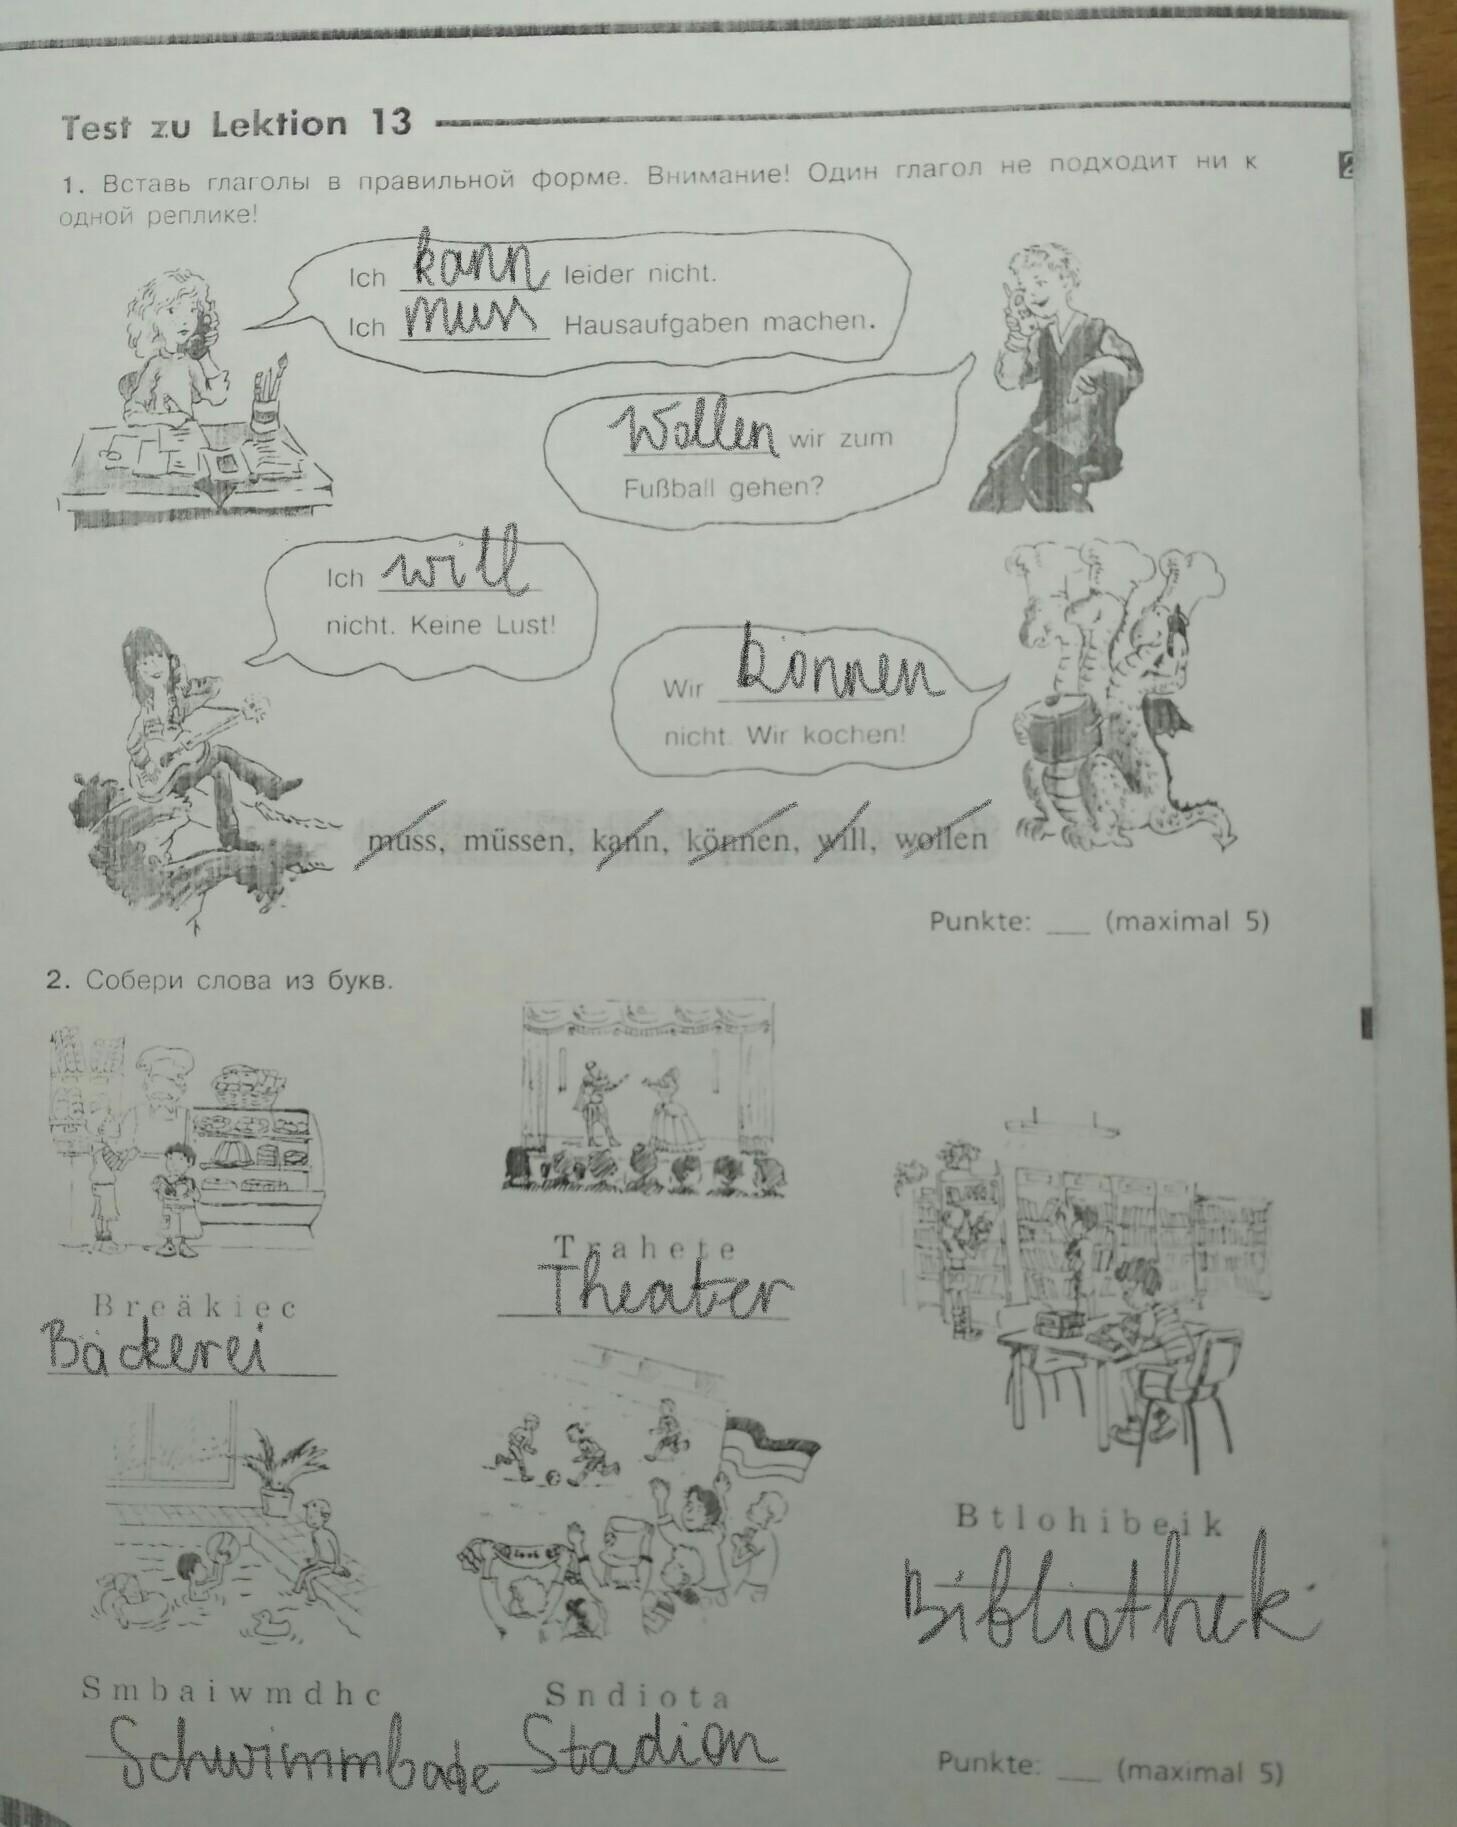 Test zu Lektion 13
1. Вставь глаголы в правильной форме. Внимание! Один глагол не подходит ни к
одной реплике!
Ich kann leider nicht.
Ich muss Hausaufgaben machen.
Wollen wir zum
Fußball gehen?
Ich will
nicht. Keine Lust!
Wir können
nicht. Wir kochen!
muss, müssen, kann, können, will, wollen
Punkte: ___ (maximal 5)
2. Собери слова из букв.
Breäkiec
Bäckerei
Trahete
Theater
Btlohibeik
Bibliothek
Smbaiwmdhc
Schwimmbade
Sndiota
Stadion
Punkte: ___ (maximal 5)